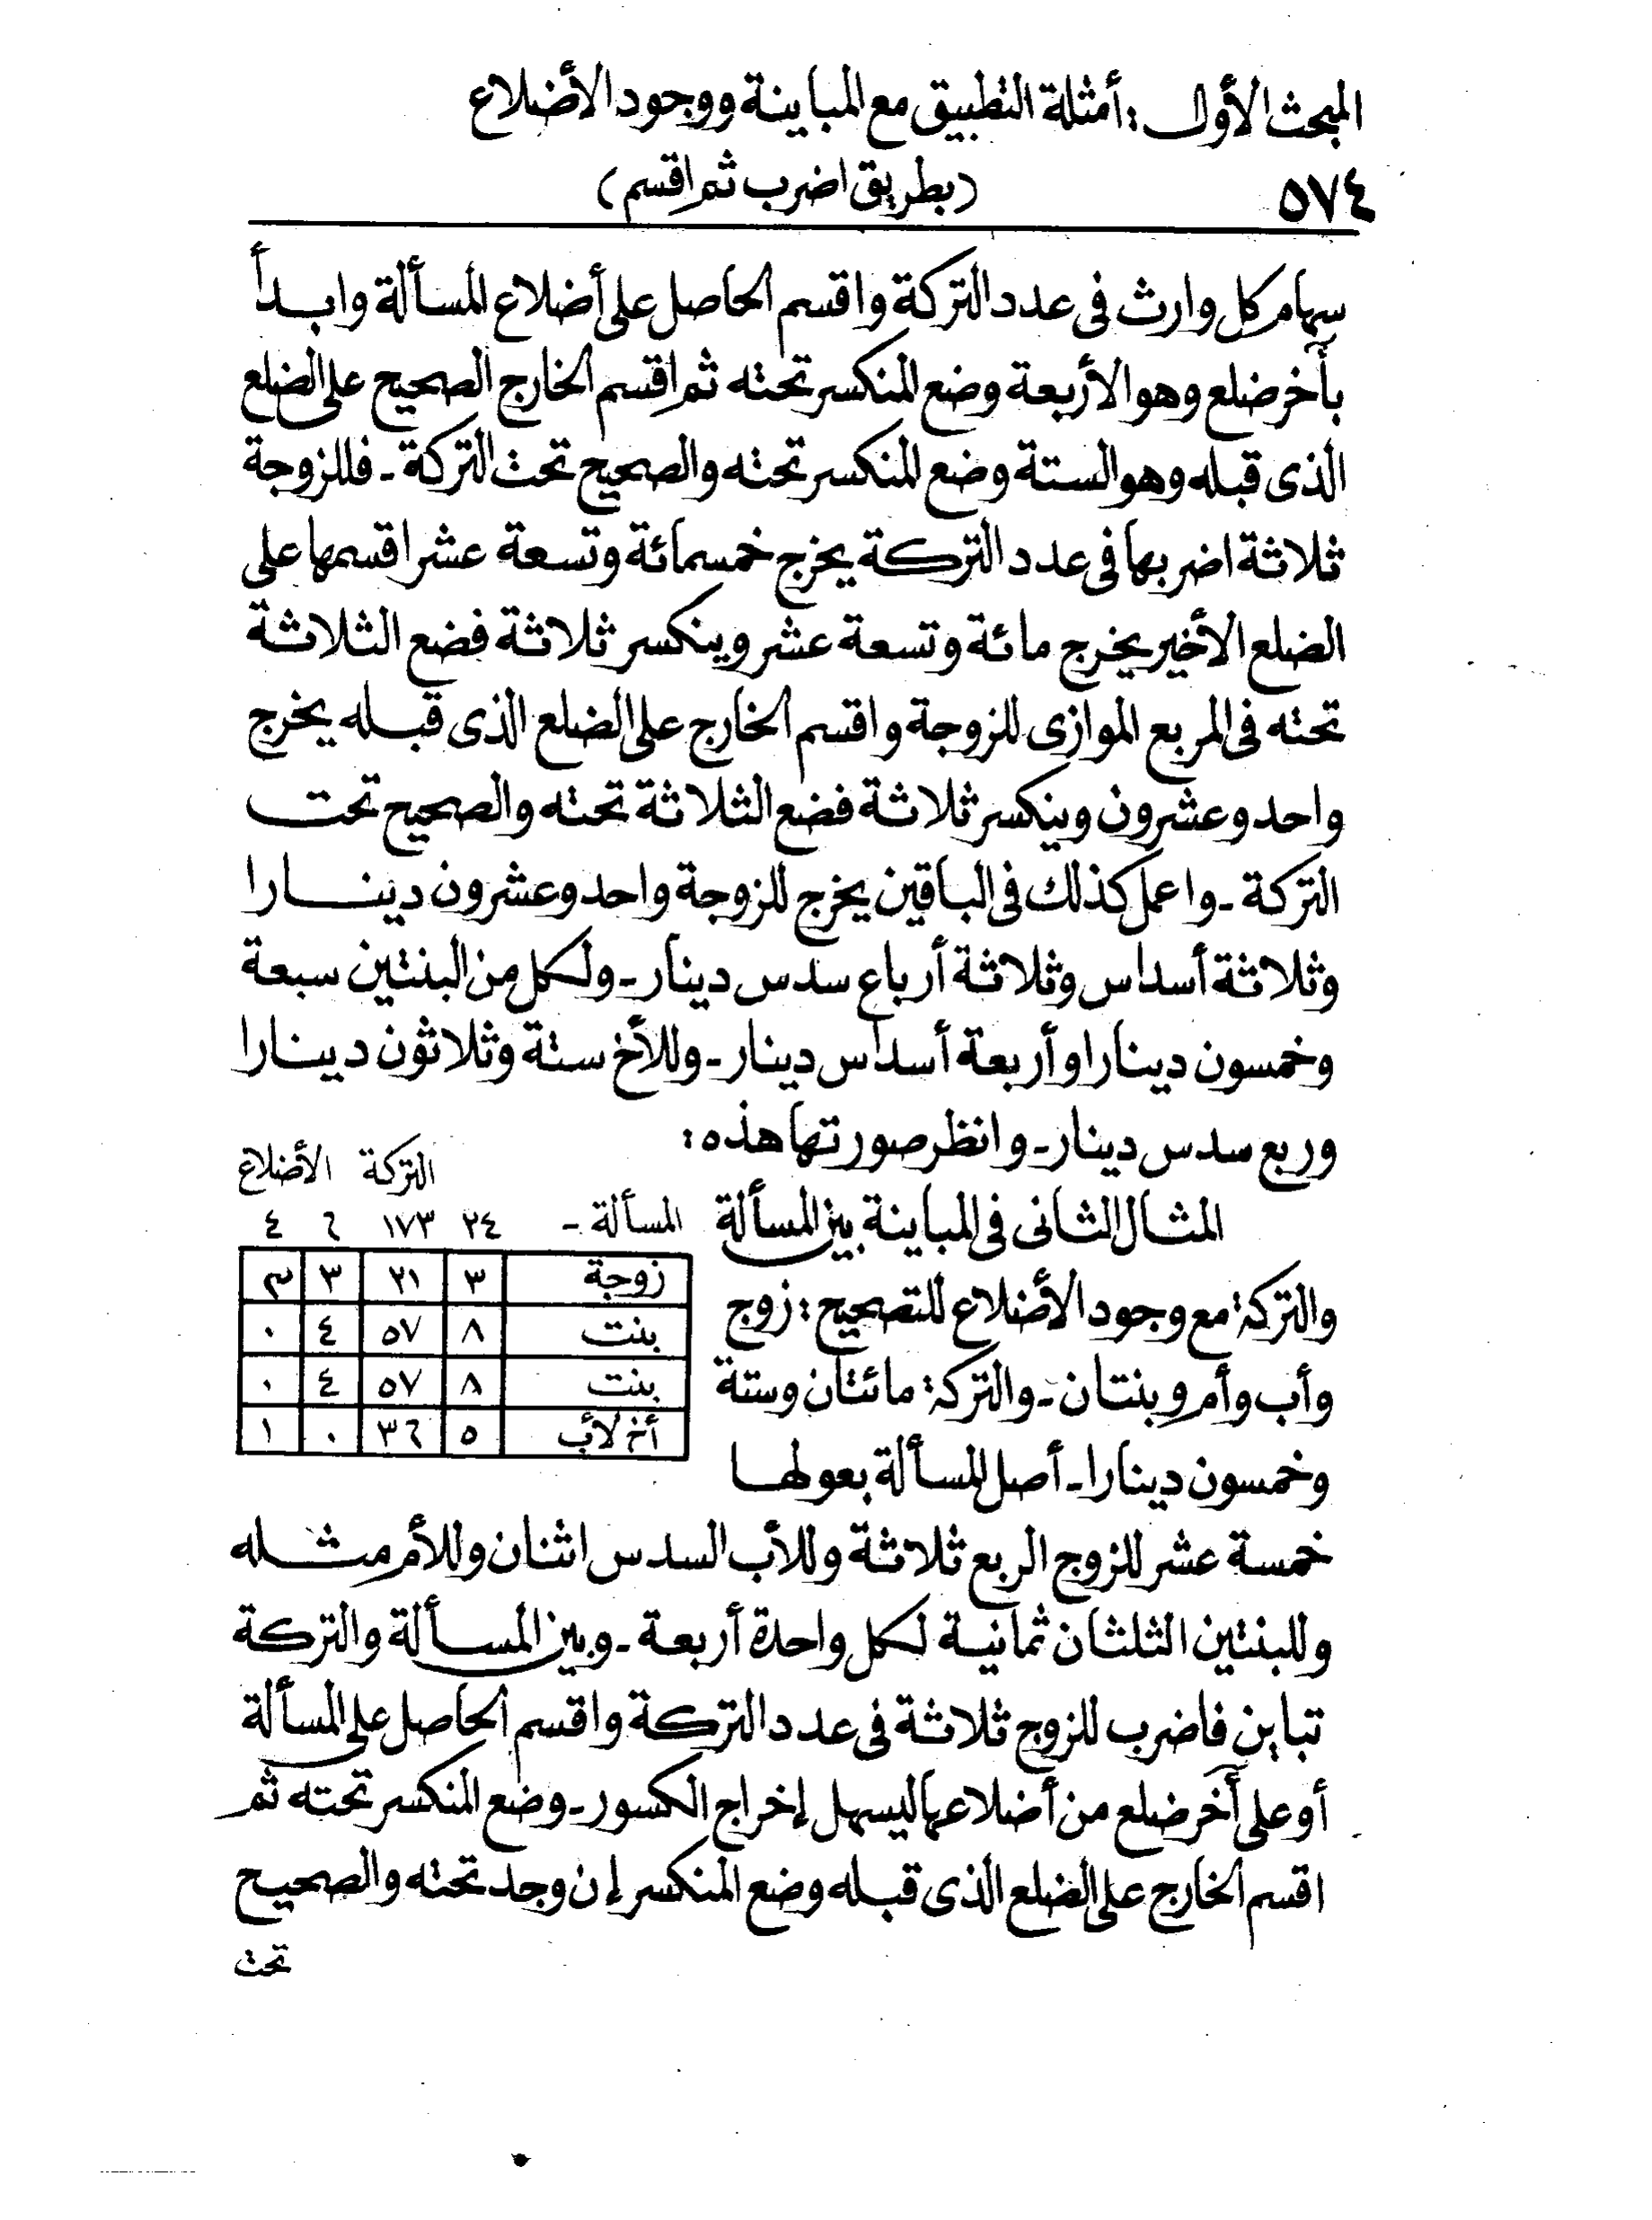 المبحث الأول : أمثلة التطبيق مع المباينة ووجود الأضلاع
٥٧٤ (بطريق اضرب ثم اقسم)
سهام كل وارث فى عدد التركة واقسم الحاصل على أضلاع المسألة وابدأ
بآخر ضلع وهو الأربعة وضع المنكسر تحته ثم اقسم الخارج الصحيح على الضلع
الذى قبله وهو الستة وضع المنكسر تحته والصحيح تحت التركة ـ فللزوجة
ثلاثة اضربها فى عدد التركة يخرج خمسمائة وتسعة عشر اقسمها على
الضلع الأخير يخرج مائة وتسعة عشر وينكسر ثلاثة فضع الثلاثة
تحته فى المربع الموازى للزوجة واقسم الخارج على الضلع الذى قبله يخرج
واحد وعشرون وينكسر ثلاثة فضع الثلاثة تحته والصحيح تحت
التركة ـ واعمل كذلك فى الباقين يخرج للزوجة واحد وعشرون دينارا
وثلاثة أسداس وثلاثة أرباع سدس دينار ـ ولكل من البنتين سبعة
وخمسون دينارا وأربعة أسداس دينار ـ وللأخ ستة وثلاثون دينارا
وربع سدس دينار ـ وانظر صورتها هذه :
التركة الأضلاع
المسألة ـ ٢٤ ١٧٣ ٦ ٤
زوجة ٣ ٢١ ٣ ٣
بنت ٨ ٥٧ ٤ ٠
بنت ٨ ٥٧ ٤ ٠
أخ لأب ٥ ٣٦ ٠ ١
المثال الثانى فى المباينة بين المسألة
والتركة مع وجود الأضلاع للتصحيح : زوج
وأب وأم وبنتان ـ والتركة مائتان وستة
وخمسون دينارا ـ أصل المسألة بعولها
خمسة عشر للزوج الربع ثلاثة وللأب السدس اثنان وللأم مثله
وللبنتين الثلثان ثمانية لكل واحدة أربعة ـ وبين المسألة والتركة
تباين فاضرب للزوج ثلاثة فى عدد التركة واقسم الحاصل على المسألة
أو على آخر ضلع من أضلاعها ليسهل إخراج الكسور ـ وضع المنكسر تحته ثم
اقسم الخارج على الضلع الذى قبله وضع المنكسر إن وجد تحته والصحيح
تحت